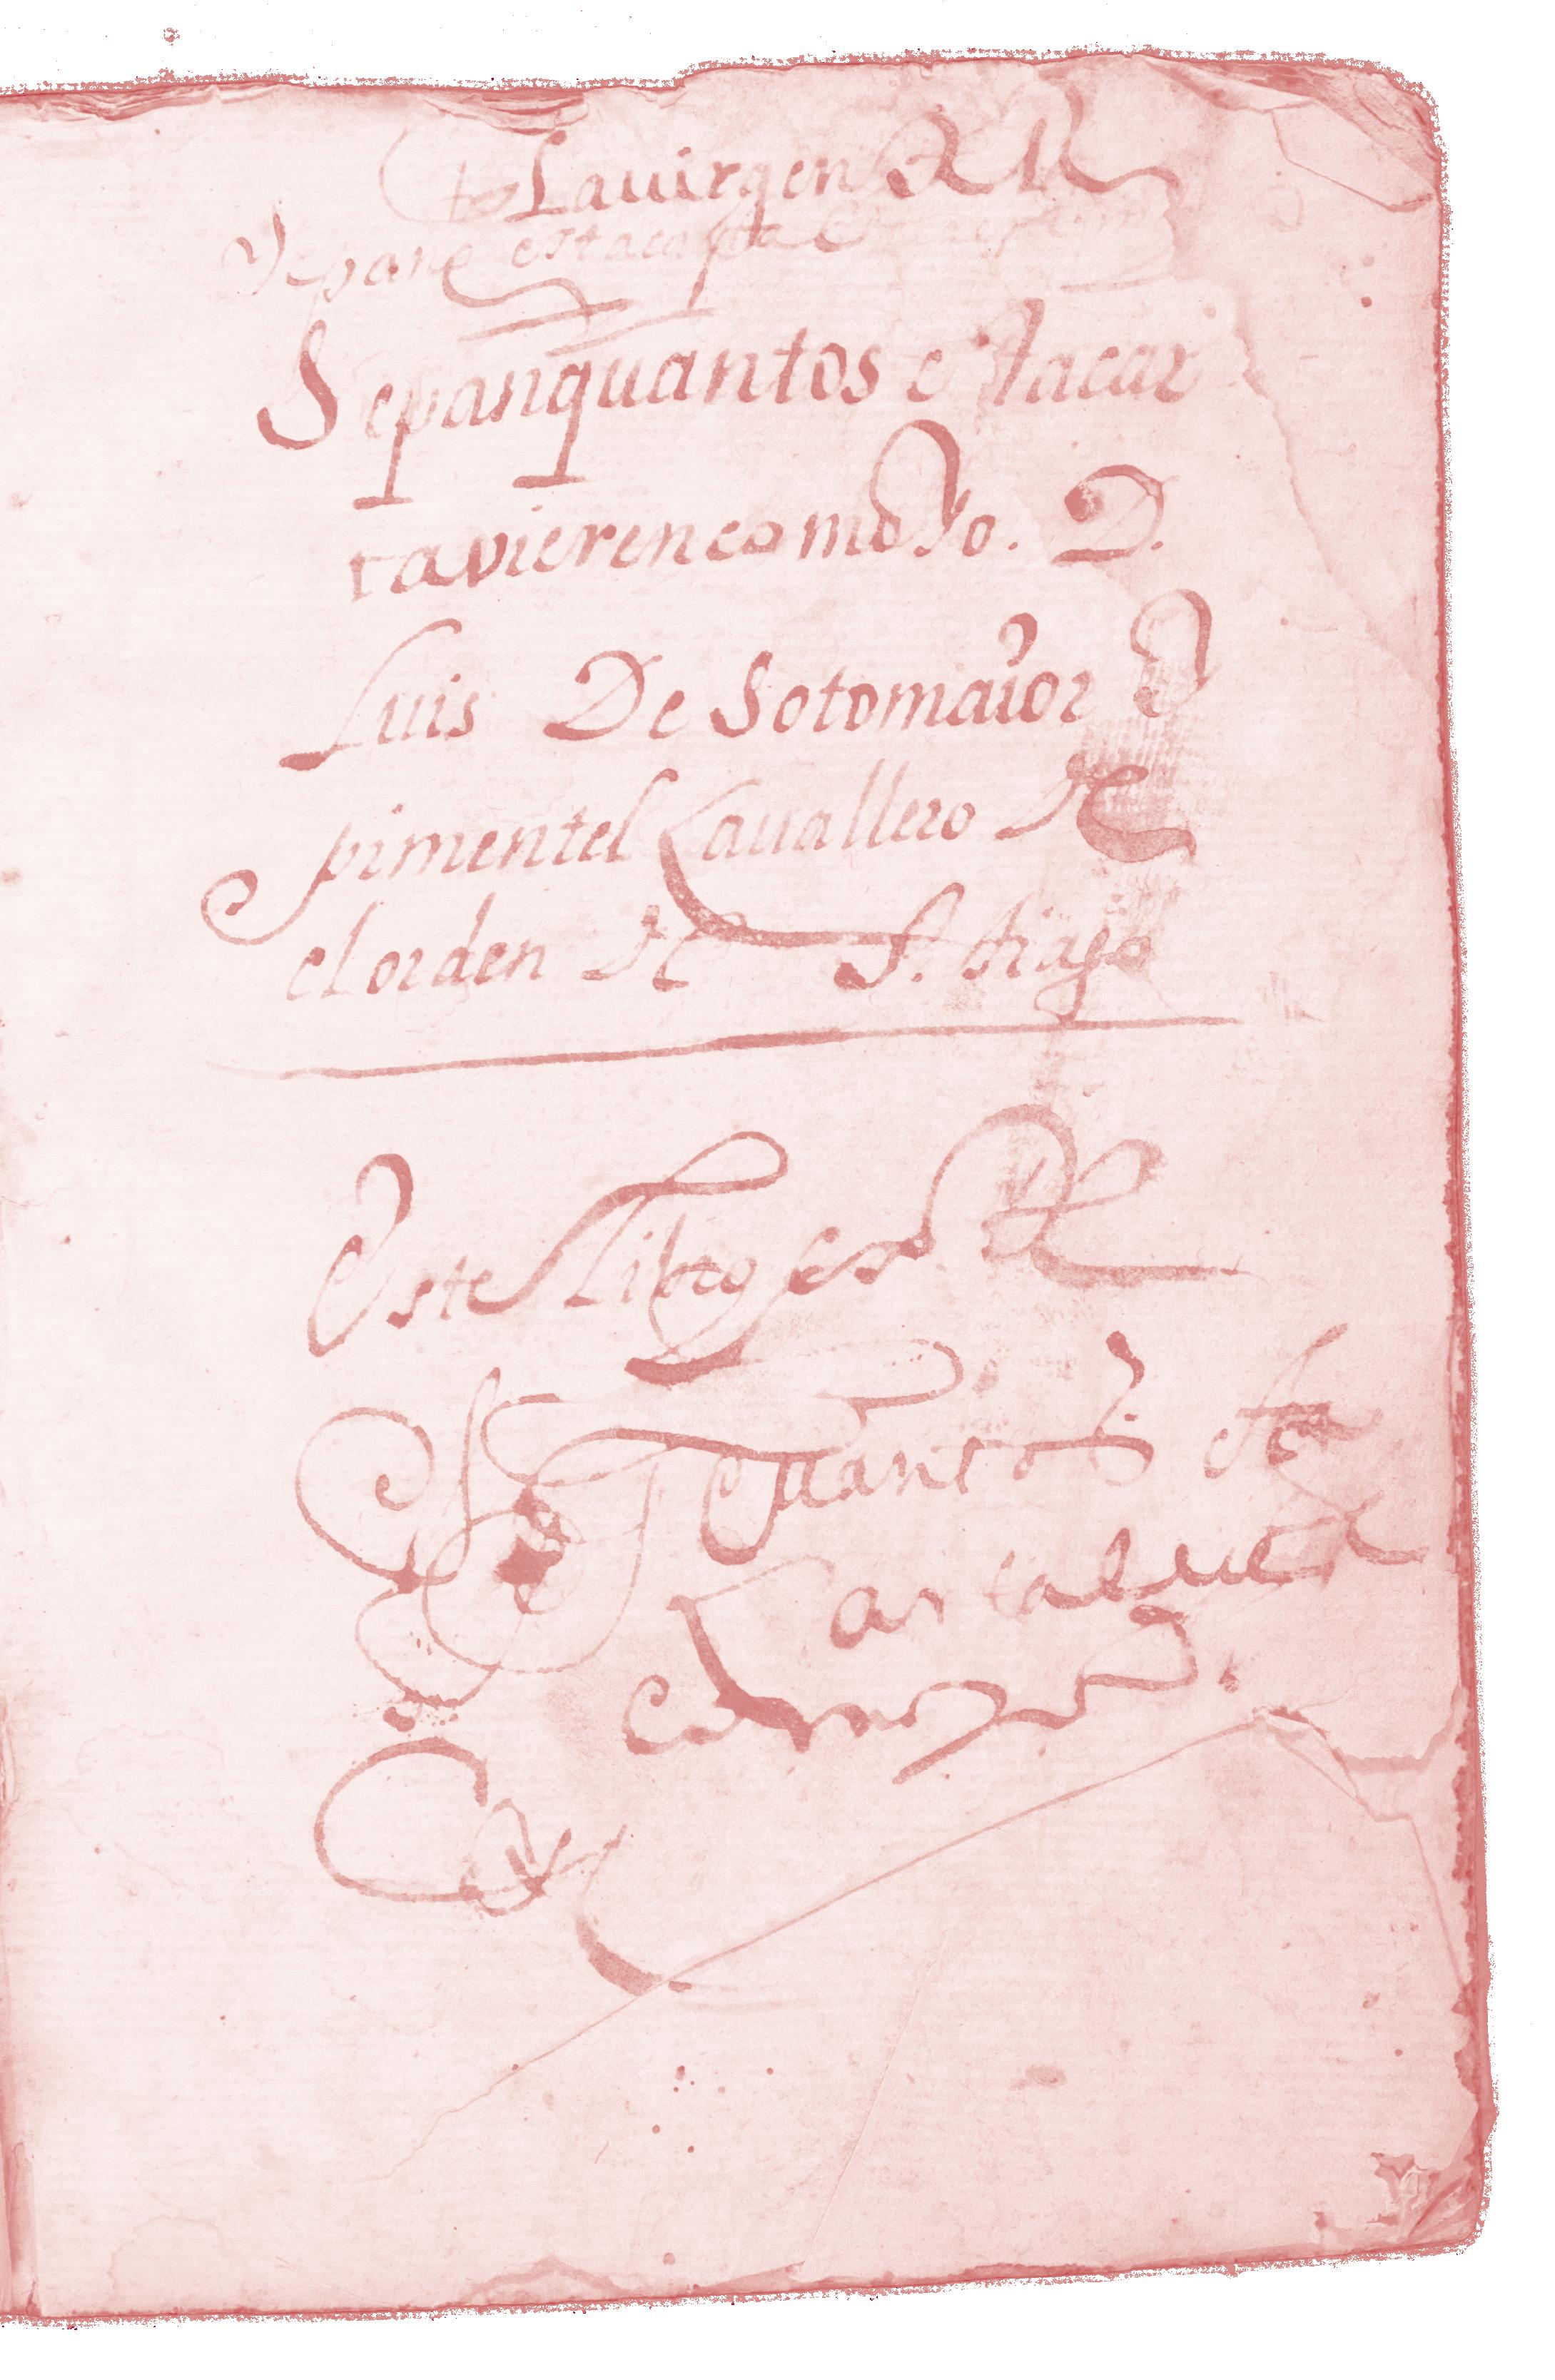 La uirgen
Sepan esta carta
Sepan quantos esta car
ta vieren como Yo. D.
Luis De Sotomaior y
pimentel Cauallero de
el orden de S. tiago
Este Libro es de
Sepan quantos esta
Carta vieren
como yo